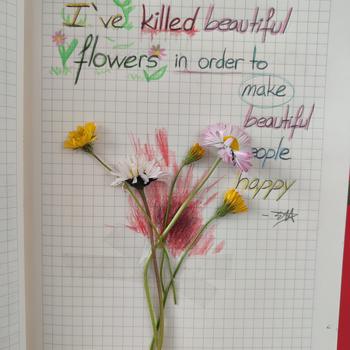 I've killed beautiful
flowers in order to
make
beautiful
people
happy